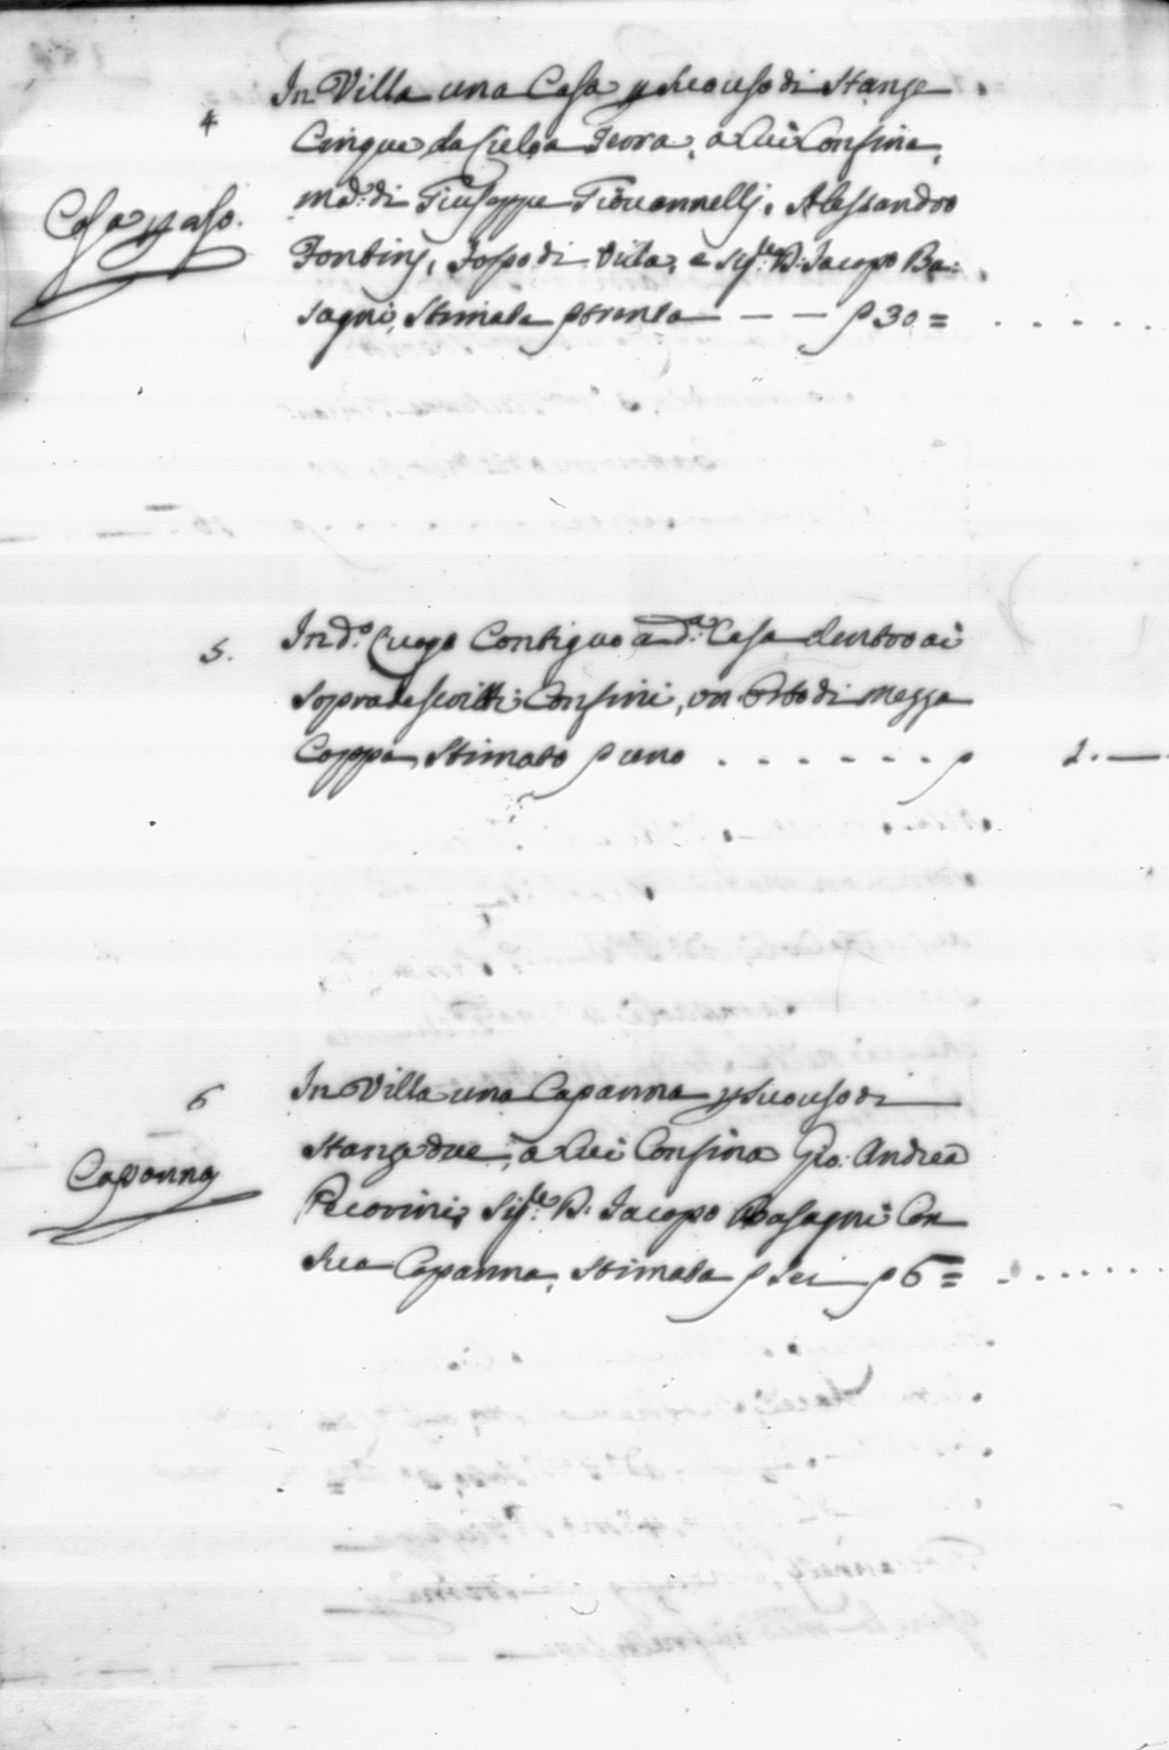 4
In Villa una Casa p suo uso di Stanze
Cinque da Cielo a Terra, a cui Confina,
Casa p uso.
m.a d.i Giuseppe Giovannelli, Alessandro
Fontini, Fosso di Villa, e Sig.re D. Jacopo Ba=
sagni, Stimata p trenta — — p 30 =
5.
In d.o Luogo Contiguo a d.a Casa dentro ai
Sopradescritti Confini, un Orto di mezza
Coppa, Stimato p uno . . . . . . p 1. —
6
In Villa una Capanna p suo uso di
Stanze due, a cui Confina Gio. Andrea
Capanna
Pecorini, Sig.re D. Jacopo Basagni Con
Sua Capanna, Stimata p Sei p 6 =